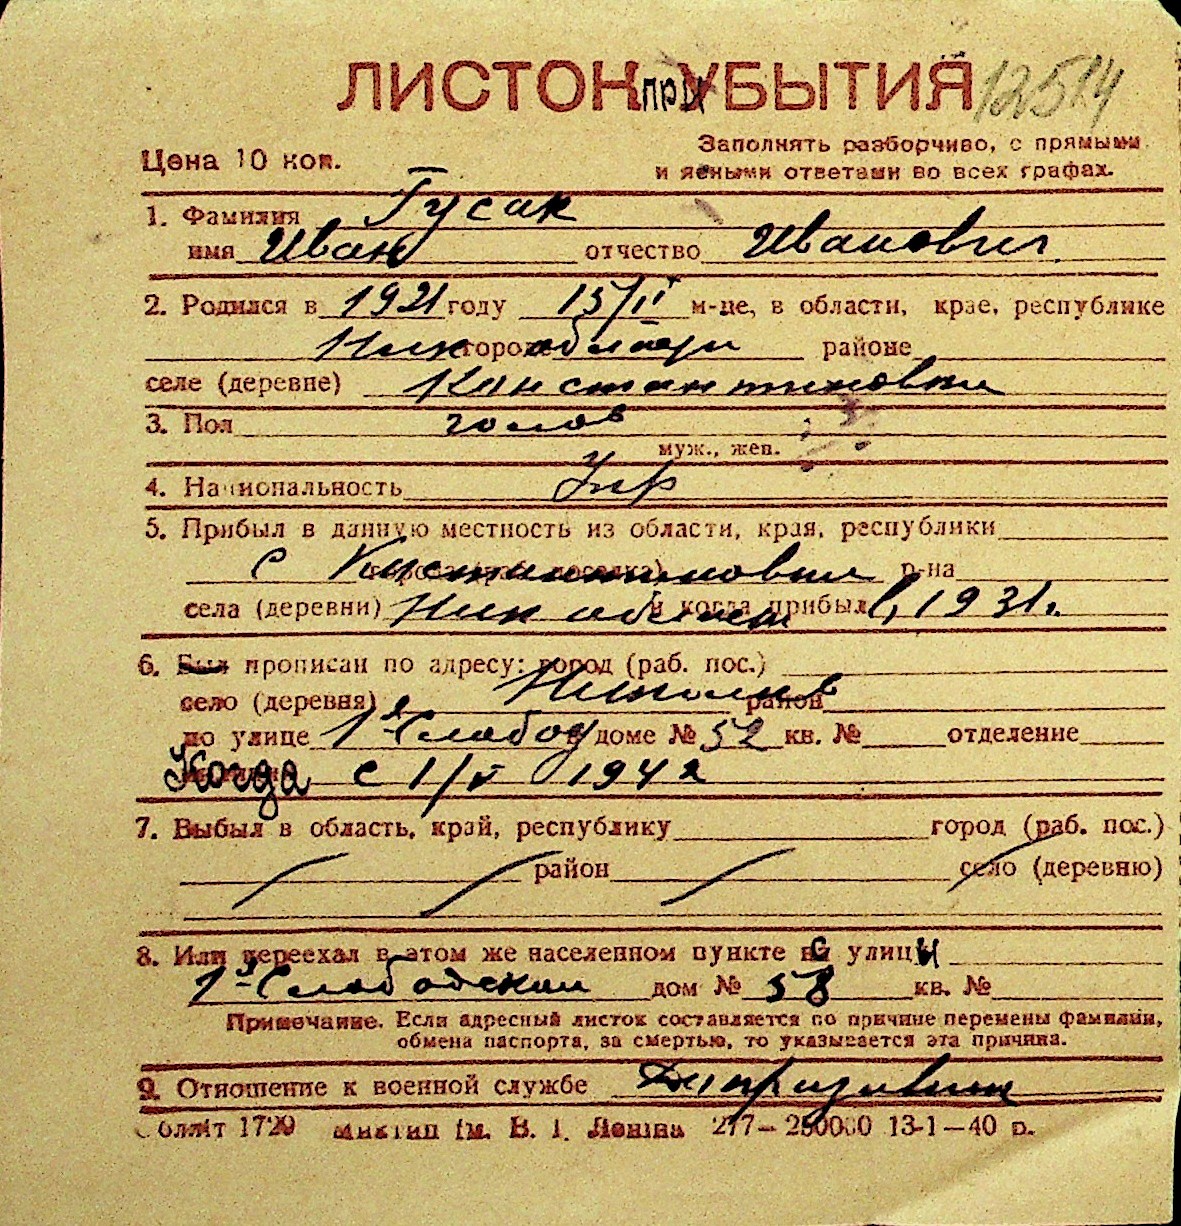 ЛИСТОК ПРИБЫТИЯ 12514
Цена 10 коп.
Заполнять разборчиво, с прямыми
и ясными ответами во всех графах.
1. Фамилия Гусак
имя Иван отчество Иванович
2. Родился в 1921 году 15/II м-це, в области, крае, республике
Ник городе области районе
селе (деревне) Константиновки
3. Пол голов
муж., жен.
4. Национальность Укр
5. Прибыл в данную местность из области, края, республики
с Константиновки р-на
села (деревни) Ник области и когда прибыл в 1931.
6. Был прописан по адресу: город (раб. пос.)
село (деревня) Николаев район
по улице 1я Слобод доме № 52 кв. № отделение
Когда с 1/V 1942
7. Выбыл в область, край, республику город (раб. пос.)
район село (деревню)
8. Или переехал в этом же населенном пункте с улицы
1й Слободской дом № 58 кв. №
Примечание. Если адресный листок составляется по причине перемены фамилии,
обмена паспорта, за смертью, то указывается эта причина.
9. Отношение к военной службе Допризывник
Обллiт 1729 Миктип iм. В. I. Ленiна 277—250000 13-1—40 р.